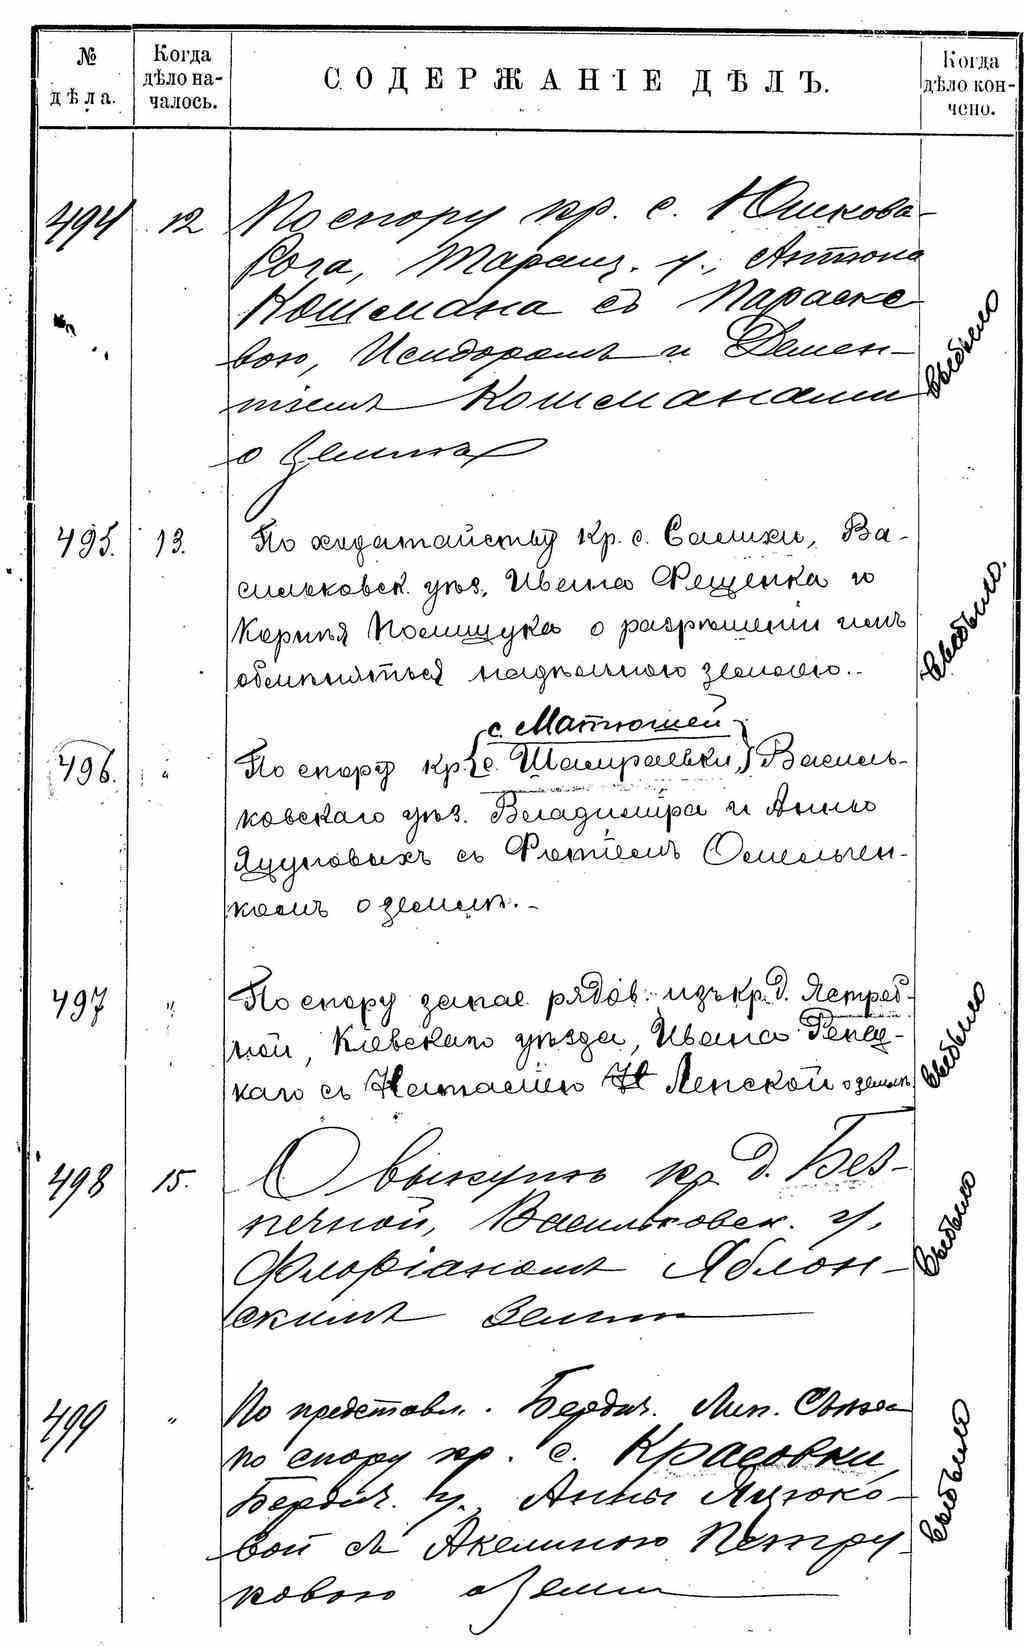 № дѣла.
Когда дѣло на-чалось.
СОДЕРЖАНІЕ ДѢЛЪ.
Когда дѣло кон-чено.
494 12 По спору кр. с. Юшкова-
Рога, Таращ. у., Антона
Кошмана съ Параске
вою, Исидоромъ и Демен-
тіемъ Кошманами
о землѣ
выбыло
495. 13. По ходатайству кр. с. Саліхи, Ва-
сильковск. уѣз. Ивана Фещенка и
Корнія Полищука о разрѣшеніи имъ
обмѣняться надѣльною землею.
выбыло.
с. Матюшей
496. " По спору кр. {с. Шамраевки,} Василь-
ковскаго уѣз. Владиміра и Анны
Яцуновыхъ съ Фотіемъ Омельчен-
комъ о землѣ.
497 " По спору запас рядов. изъ кр. д. Ястреб-
ной, Кіевскаго уѣзда, Ивана Репец-
каго съ Наталіею Ленской о землѣ
выбыло
498 15. О выкупѣ кр. д. Без-
печной, Васильковск. у.
Флоріаномъ Яблон-
скимъ земли
выбыло
499 " По представл. Бердич. Мир. Съѣзда
по спору кр. с. Красовки,
Бердич. у., Анны Язюко-
вой съ Акелиною Петру-
ковою о земли
выбыло